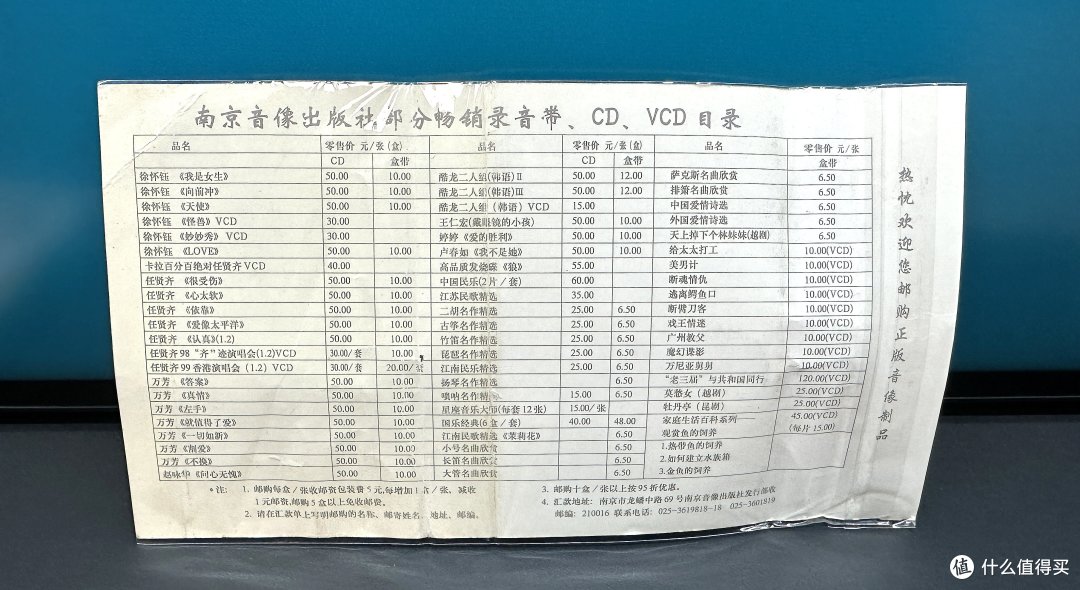 南京音像出版社部分畅销录音带、CD、VCD目录
品名 零售价 元/张(盒) 品名 零售价 元/张(盒) 品名 零售价 元/张
CD 盒带 CD 盒带 盒带
徐怀钰《我是女生》 50.00 10.00 酷龙二人组(韩语)II 50.00 12.00 萨克斯名曲欣赏 6.50
徐怀钰《向前冲》 50.00 10.00 酷龙二人组(韩语)III 50.00 12.00 排箫名曲欣赏 6.50
徐怀钰《天使》 50.00 10.00 酷龙二人组(韩语)VCD 15.00 中国爱情诗选 6.50
徐怀钰《怪兽》VCD 30.00 王仁宏(戴眼镜的小孩) 50.00 10.00 外国爱情诗选 6.50
徐怀钰《妙妙秀》VCD 30.00 婷婷《爱的胜利》 50.00 10.00 天上掉下个林妹妹(越剧) 6.50
徐怀钰《LOVE》 50.00 10.00 卢春如《我不是她》 50.00 10.00 给太太打工 10.00(VCD)
卡拉百分百绝对任贤齐VCD 40.00 高品质发烧碟《狼》 55.00 美男计 10.00(VCD)
任贤齐《很受伤》 50.00 10.00 中国民乐(2片/套) 60.00 断魂情仇 10.00(VCD)
任贤齐《心太软》 50.00 10.00 江苏民歌精选 35.00 逃离鳄鱼口 10.00(VCD)
任贤齐《依靠》 50.00 10.00 二胡名作精选 25.00 6.50 断臂刀客 10.00(VCD)
任贤齐《爱像太平洋》 50.00 10.00 古筝名作精选 25.00 6.50 戏王情迷 10.00(VCD)
任贤齐《认真》(1.2) 50.00 10.00 竹笛名作精选 25.00 6.50 广州教父 10.00(VCD)
任贤齐98“齐”迹演唱会(1.2)VCD 30.00/套 10.00 琵琶名作精选 25.00 6.50 魔幻谍影 10.00(VCD)
任贤齐99香港演唱会(1.2)VCD 30.00/套 20.00/套 江南民乐精选 25.00 6.50 万尼亚舅舅 10.00(VCD)
万芳《答案》 50.00 10.00 扬琴名作精选 6.50 “老三届”与共和国同行 120.00(VCD)
万芳《真情》 50.00 10.00 唢呐名作精选 15.00 6.50 莫愁女(越剧) 25.00(VCD)
万芳《左手》 50.00 10.00 星座音乐大师(每套12张) 15.00/张 牡丹亭(昆剧) 25.00(VCD)
万芳《就值得了爱》 50.00 10.00 国乐经典(6盒/套) 40.00 48.00 家庭生活百科系列 45.00(VCD)
万芳《一切如新》 50.00 10.00 江南民歌精选《茉莉花》 6.50 观赏鱼的饲养 (每片15.00)
万芳《割爱》 50.00 10.00 小号名曲欣赏 6.50 1.热带鱼的饲养
万芳《不换》 50.00 10.00 长笛名曲欣赏 6.50 2.如何建立水族箱
赵咏华《问心无愧》 50.00 10.00 大管名曲欣赏 6.50 3.金鱼的饲养
*注: 1. 邮购每盒/张收邮资包装费5元,每增加1盒/张、减收
1元邮资,邮购5盒以上免收邮费。
2. 请在汇款单上写明邮购的名称、邮寄姓名、地址、邮编。
3. 邮购十盒/张以上按95折优惠。
4. 汇款地址: 南京市龙蟠中路69号南京音像出版社发行部收
邮编: 210016 联系电话: 025-3619818-18 025-3601819
热忱欢迎您邮购正版音像制品
值 什么值得买